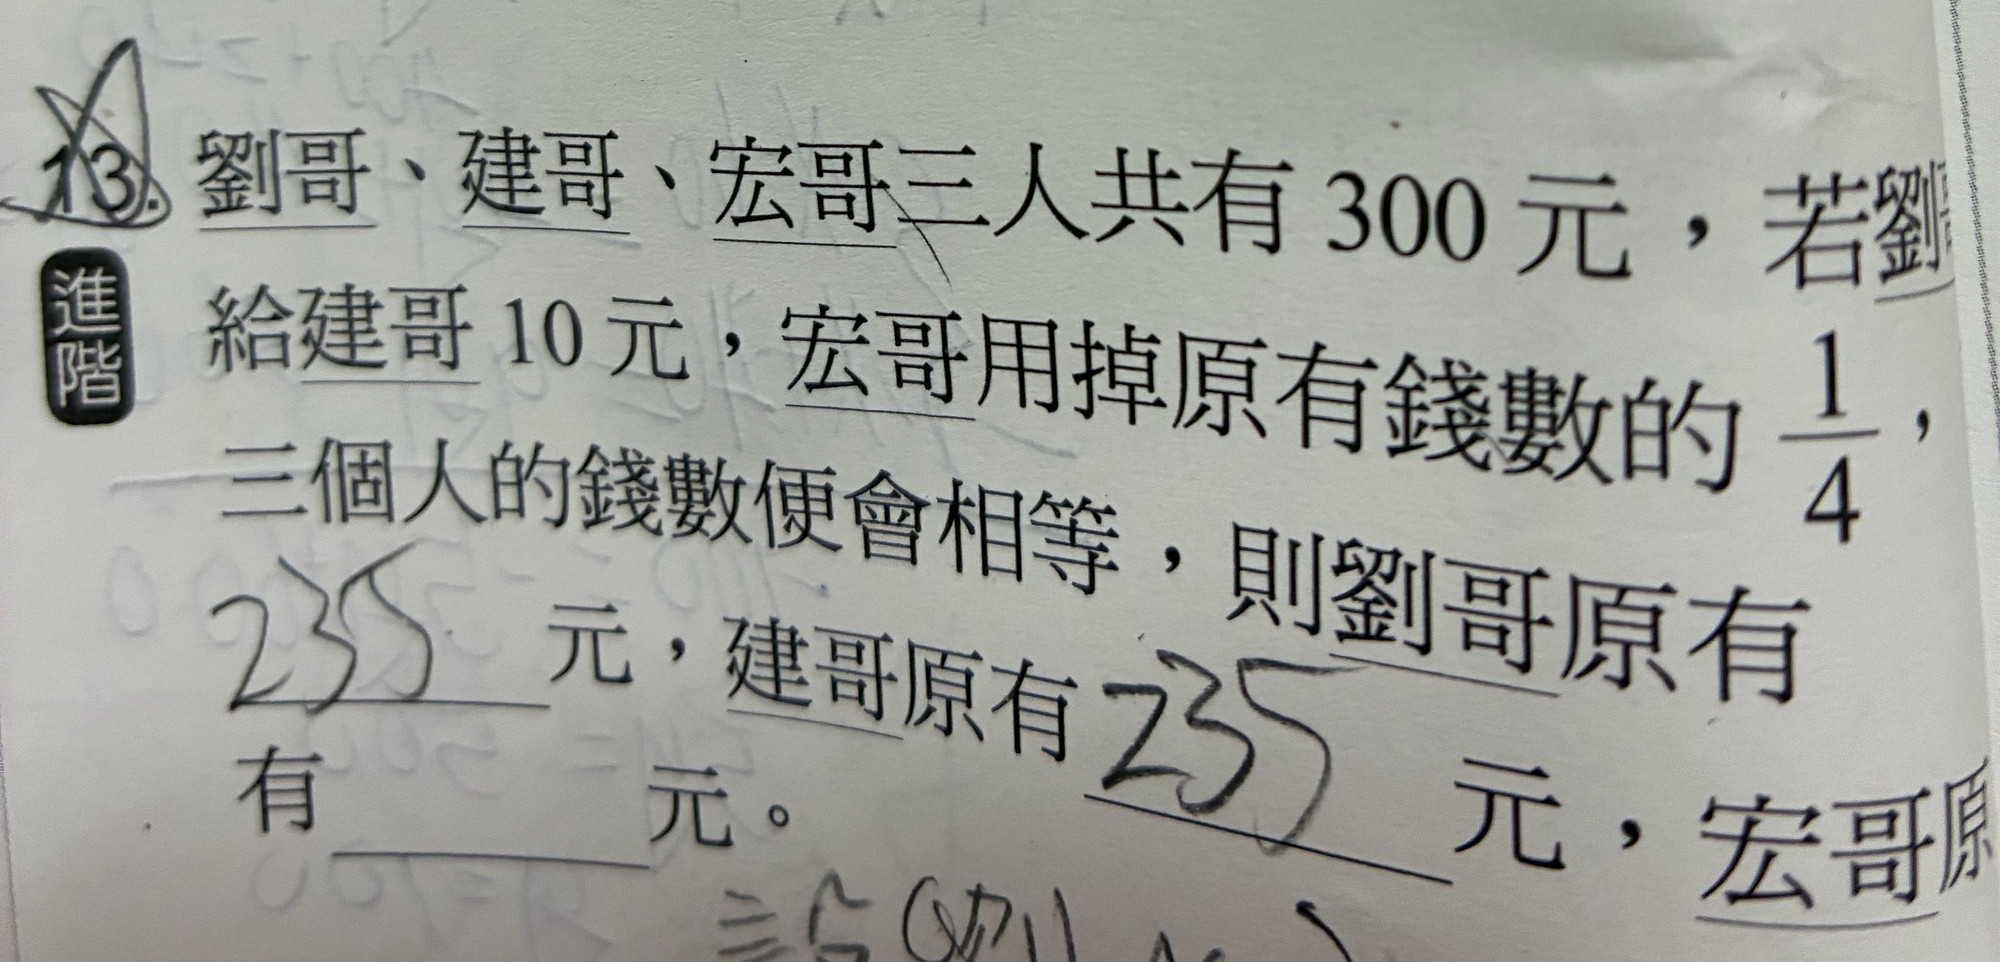 13. 劉哥、建哥、宏哥三人共有 300 元，若劉
進階
給建哥 10 元，宏哥用掉原有錢數的 1/4，
三個人的錢數便會相等，則劉哥原有
235 元，建哥原有 235 元，宏哥原
有 元。